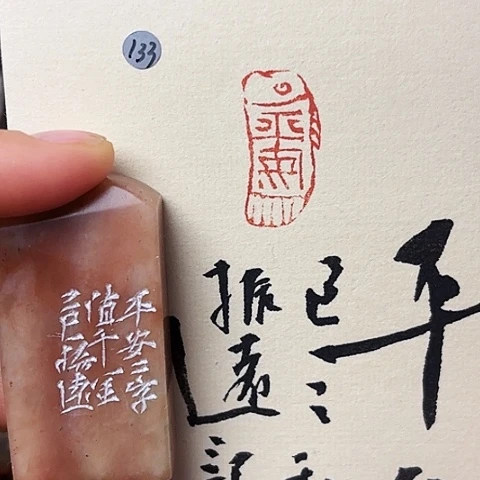 133
平安
平安二字
值千金
振遠
平
振遠記